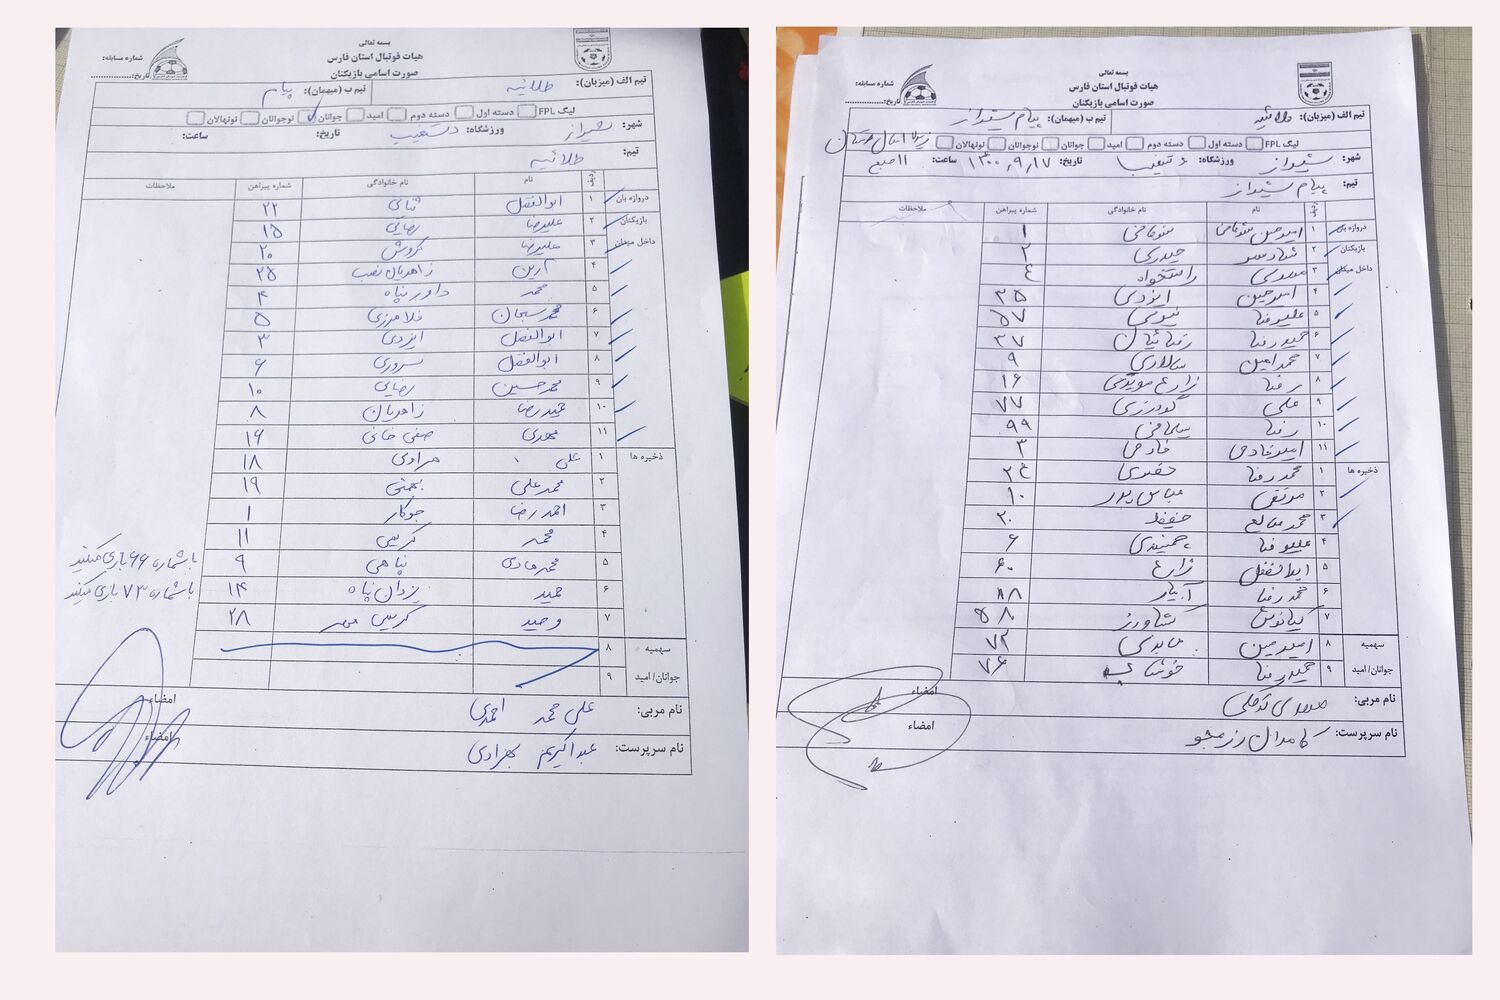 بسمه تعالی
هیات فوتبال استان فارس
صورت اسامی بازیکنان
شماره مسابقه:
تاریخ:
تیم الف (میزبان): طلائیه
تیم ب (میهمان): پیام
لیگ FPL دسته اول دسته دوم امید جوانان نوجوانان نونهالان
شهر: شیراز ورزشگاه: دستغیب تاریخ: ساعت:
تیم: طلائیه
ردیف نام نام خانوادگی شماره پیراهن ملاحظات
دروازه بان ۱ ابوالفضل ثنائی ۲۲
بازیکنان ۲ علیرضا رضایی ۱۵
داخل میدان ۳ علیرضا کروش ۲۰
۴ آرین زاهدیان نصب ۲۵
۵ محمد داور پناه ۴
۶ محمد سبحان غلامرزی ۵
۷ ابوالفضل ایزدی ۳
۸ ابوالفضل سروری ۶
۹ محمد حسین رضایی ۱۰
۱۰ حمیدرضا زاهدیان ۸
۱۱ مهدی صفی خانی ۱۶
ذخیره ها ۱ علی مرادی ۱۸
۲ محمد علی بهمنی ۱۹
۳ احمد رضا جوکار ۱
۴ محمد کریمی ۱۱
۵ محمد هادی پناهی ۹ با شماره ۶۶ بازی میکند
۶ حمید یزدان پناه ۱۴ با شماره ۷۳ بازی میکند
۷ وحید کریمی مهر ۲۸
سهمیه ۸
جوانان/ امید ۹
نام مربی: علی محمد احمدی امضاء
نام سرپرست: عبدالکریم بهزادی امضاء
بسمه تعالی
هیات فوتبال استان فارس
صورت اسامی بازیکنان
شماره مسابقه:
تاریخ:
تیم الف (میزبان): طلائیه
تیم ب (میهمان): پیام شیراز
لیگ FPL دسته اول دسته دوم امید جوانان نوجوانان نونهالان
شهر: شیراز ورزشگاه: دستغیب تاریخ: ۱۴۰۰,۹,۱۷ ساعت: ۱۱ صبح
تیم: پیام شیراز
ردیف نام نام خانوادگی شماره پیراهن ملاحظات
دروازه بان ۱ امیرحسین ۱
بازیکنان ۲ حیدری ۲
داخل میدان ۳ مهدی راستخواه ۴
۴ امیرحسین ایزدی ۳۵
۵ علیرضا ۵۷
۶ حمیدرضا رضائیان ۳۷
۷ محمد امین سالاری ۹
۸ رضا زارع مویدی ۱۶
۹ علی گودرزی ۷۷
۱۰ رضا سلمانی ۹۹
۱۱ امیر فلاحی ۳
ذخیره ها ۱ محمدرضا جعفری ۲۴
۲ مرتضی عباس پور ۱۰
۳ محمد صالح حفیظ ۳۰
۴ علیرضا جمشیدی ۶
۵ ابوالفضل زارع ۶۰
۶ محمدرضا آبیار ۸۸
۷ کیانوش کشاورز ۵۸
سهمیه ۸ امیرحسین عابدی ۷۲
جوانان/ امید ۹ حمیدرضا ۷۶
نام مربی: مهدی توکلی امضاء
نام سرپرست: کامدال رزمجو امضاء